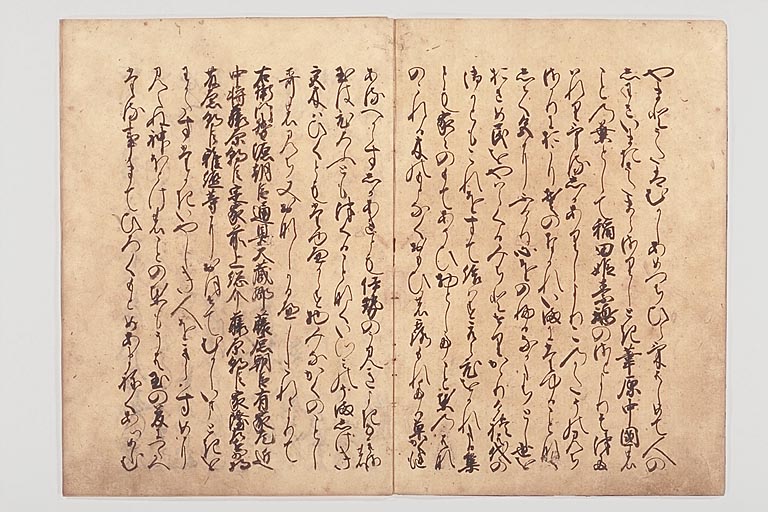 やまとうたはむかしあめつちひらけはしめて人の
しわさいまたさたまらさりしとき葦原中國の
ことの葉として稲田姫素鵝のさとよりそつたは
れりけるしかありしよりこのかたそのみち
さかりにおこりそのなかれいまにたゆることなく
して色にふけり心をのふるなかたちとし世を
おさめ民をやはらくるみちとせりかかりけれは代々の
みかともこれをすて給はすえらひをかれたる集
とも家々のもてあそひ物としてことはの花
のこれる木のもともかたくおもひの露もれたる草かくれも
あるへからすしかはあれとも伊勢のうみきよきなきさの
たまはひろふともつくることなくいつみのそましけき
宮木はひくともたゆへからす物みなかくのことし
哥のみち又おなしかるへしこれによりて
右衛門督源朝臣通具大蔵卿藤原朝臣有家左近
中将藤原朝臣定家前上総介藤原朝臣家隆左近少将
藤原朝臣雅經等におほせてむかしいまときを
わかたすたかきいやしき人をきらはすめに
見えぬ神ほとけのことの葉もうは玉の夢につたへ
たる事まてひろくもとめあまねくあつめしむ